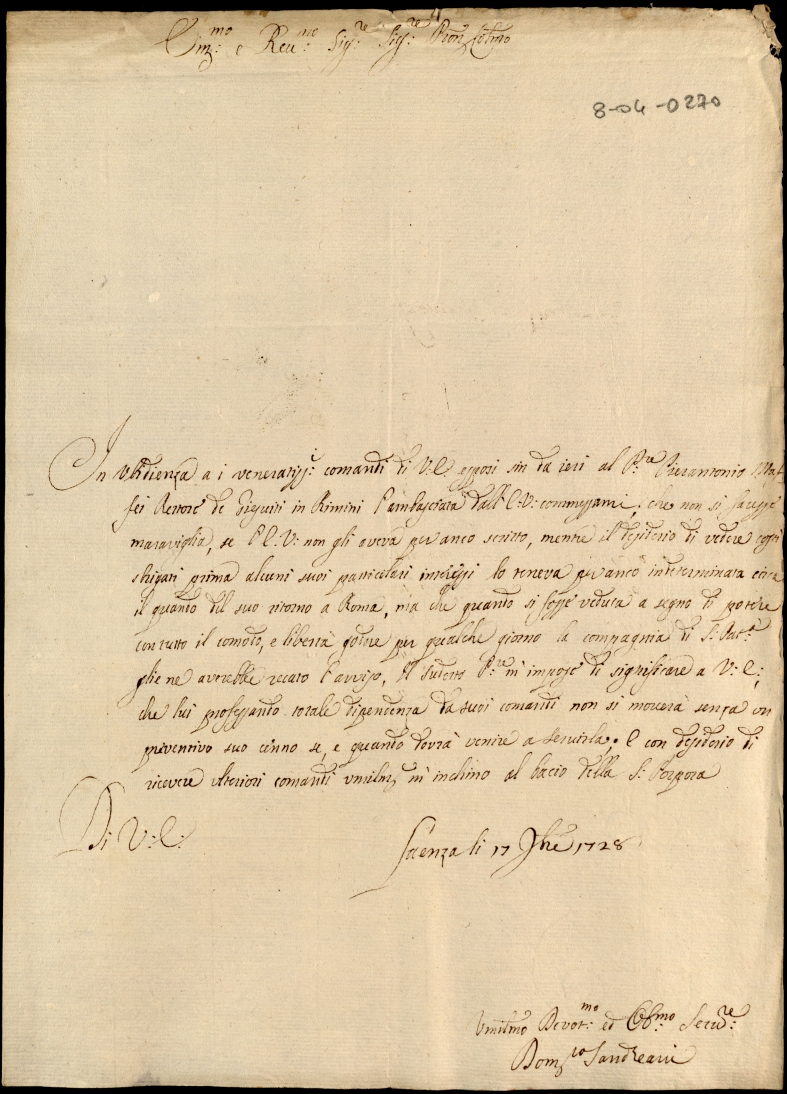 Em.mo e Reu.mo Sig.re Sig.re Pron Colmo
8-04-0270
In Vbidienza a i veneratiss.i comandi di V: E. esposi sin da ieri al P.re Pierantonio Maf
fei Rettore de Giesuiti in Rimini l'ambasciata dall'E: V: commessami, che non si facesse
maraviglia, se l'E. V: non gli aveva per anco scritto, mentre il desiderio di vedere
strigati prima alcuni suoi particolari interessi lo teneva per anco interminata circa
il quanto del suo ritorno a Roma, ma che quanto si fosse veduta a segno di potere
con tutto il comodo, e libertà godere per qualche giorno la compagnia di S: Pat.tà
glie ne averebbe recato l'avviso, Il sudetto P.re m'impose di significare a V: E:,
che lui professando totale dipendenza da suoi comandi non si moverà senza un
preventivo suo cenno se, e quando dovrà venire a servirla; E con desiderio di
ricevere ulteriori comandi vmilm.e m'inchino al bacio della S: Porpora
Di V: E:
Faenza li 17 9bre 1728
Vmilmo Devot.mo ed Obb.mo Seru.re
Dom.co